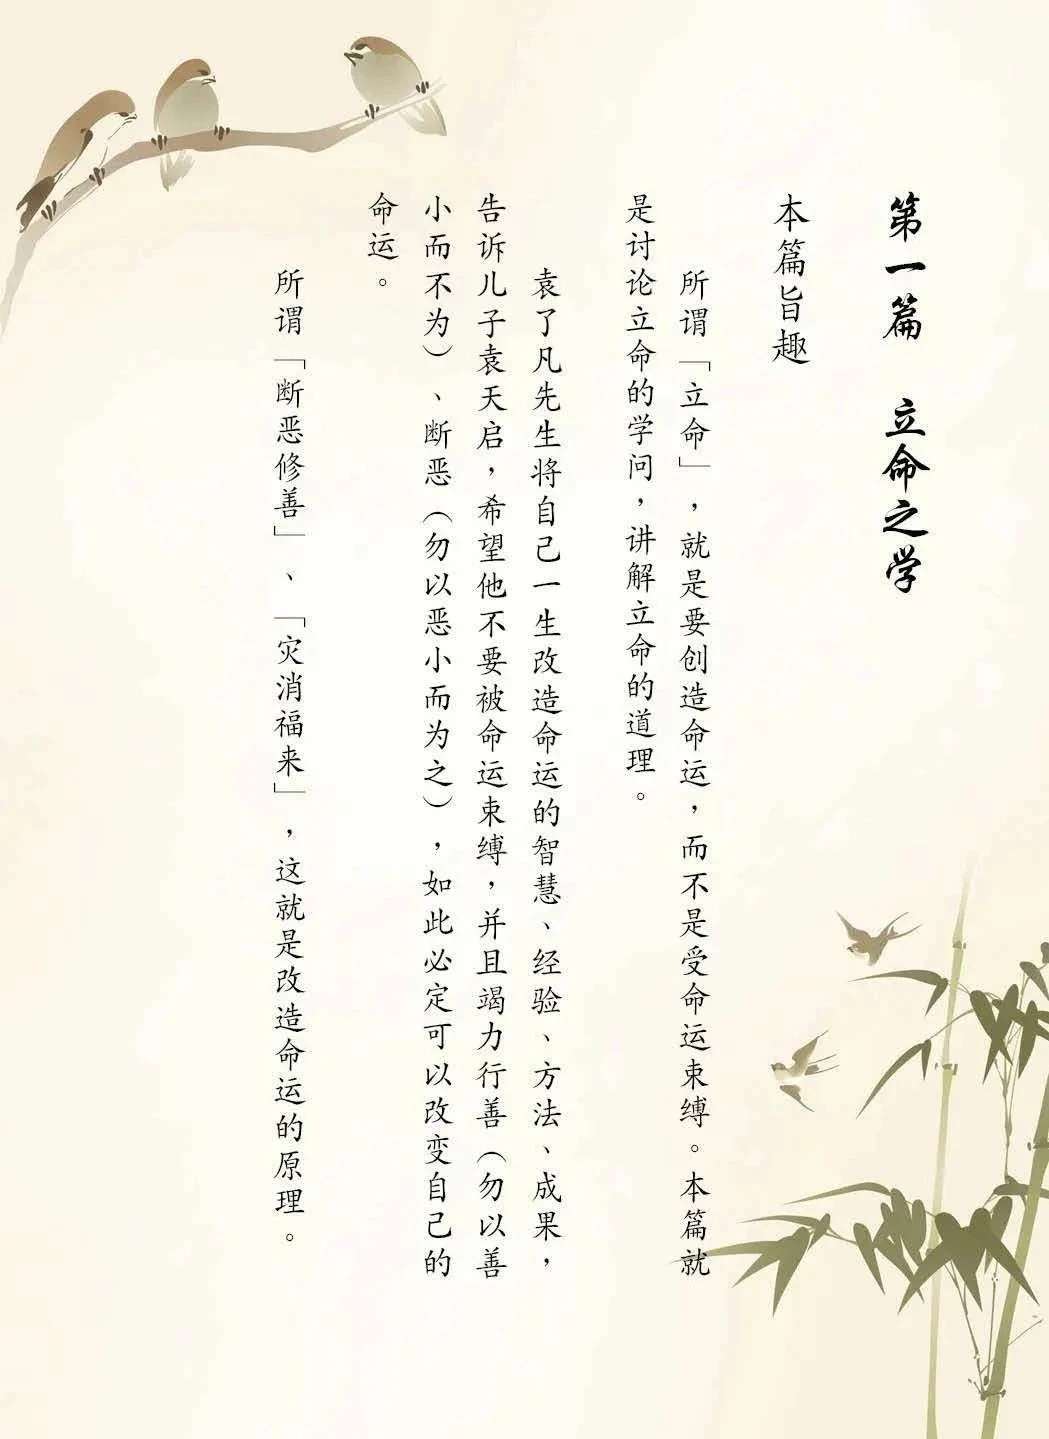 第一篇　立命之学
本篇旨趣
所谓「立命」，就是要创造命运，而不是受命运束缚。本篇就
是讨论立命的学问，讲解立命的道理。
袁了凡先生将自己一生改造命运的智慧、经验、方法、成果，
告诉儿子袁天启，希望他不要被命运束缚，并且竭力行善（勿以善
小而不为）、断恶（勿以恶小而为之），如此必定可以改变自己的
命运。
所谓「断恶修善」、「灾消福来」，这就是改造命运的原理。